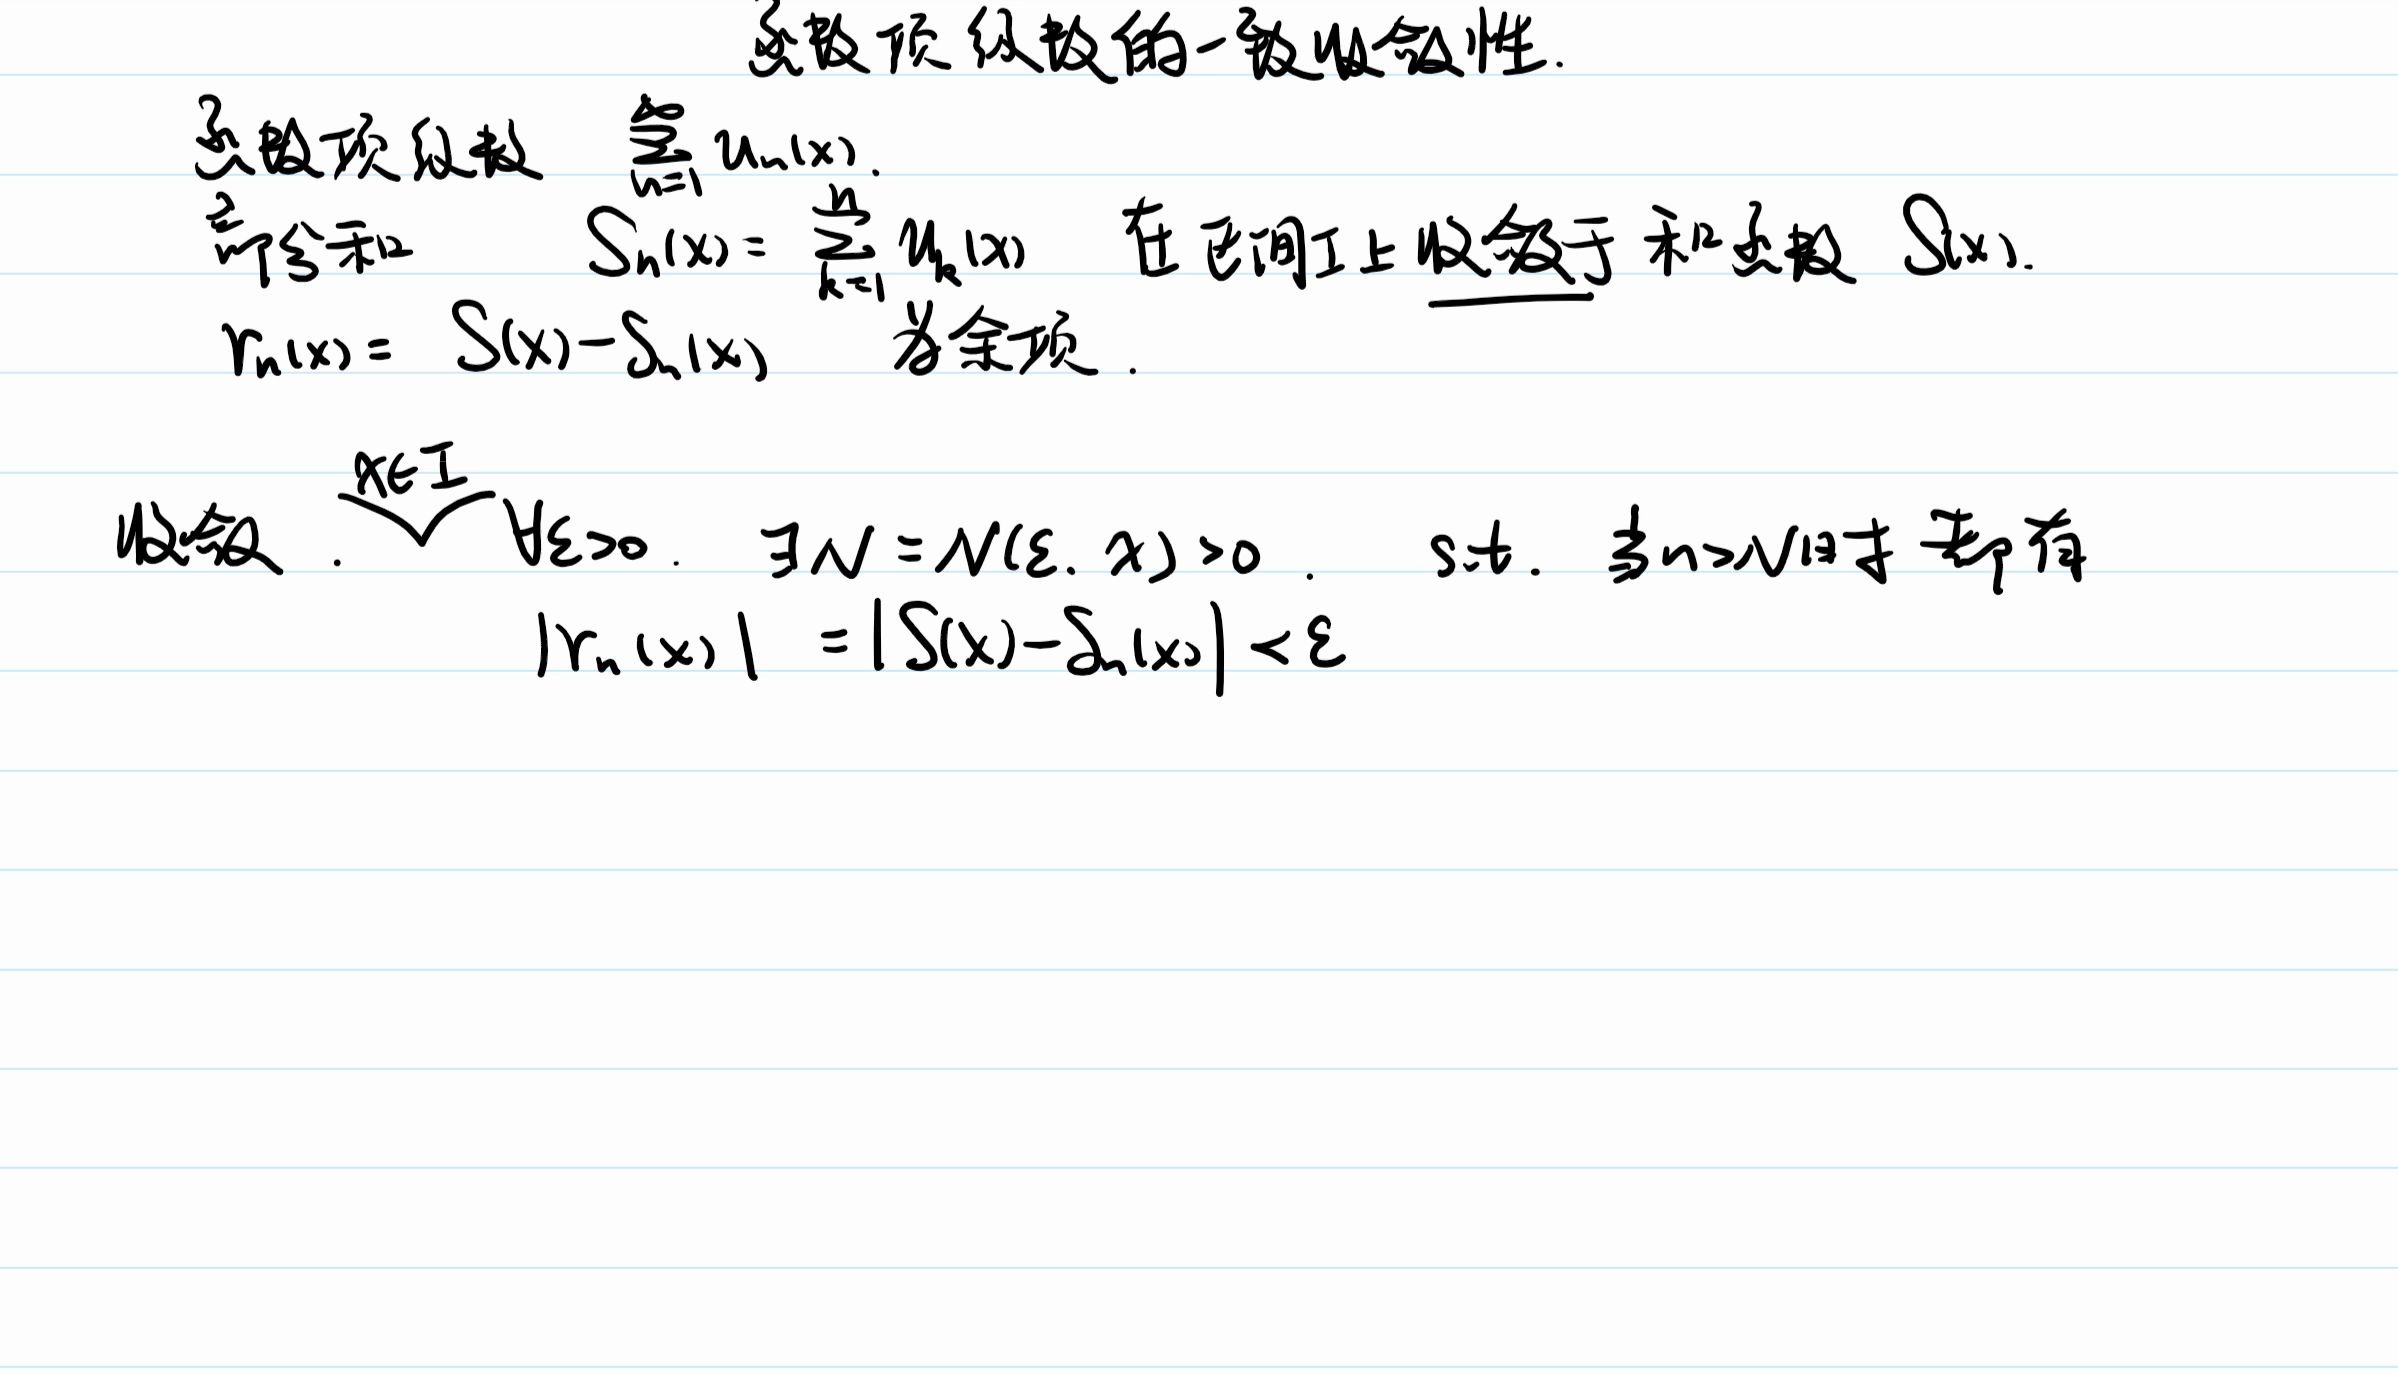 函数项级数的一致收敛性.
函数项级数 $\sum_{n=1}^{\infty} u_n(x)$.
部分和 $S_n(x) = \sum_{k=1}^{n} u_k(x)$ 在区间I上收敛于和函数 $S(x)$.
$r_n(x) = S(x) - S_n(x)$ 为余项.
x∈I
收敛. ∀ε>0. ∃N = N(ε. x) >0. s.t. 当n>N时 都有
$|r_n(x)| = |S(x) - S_n(x)| < ε$